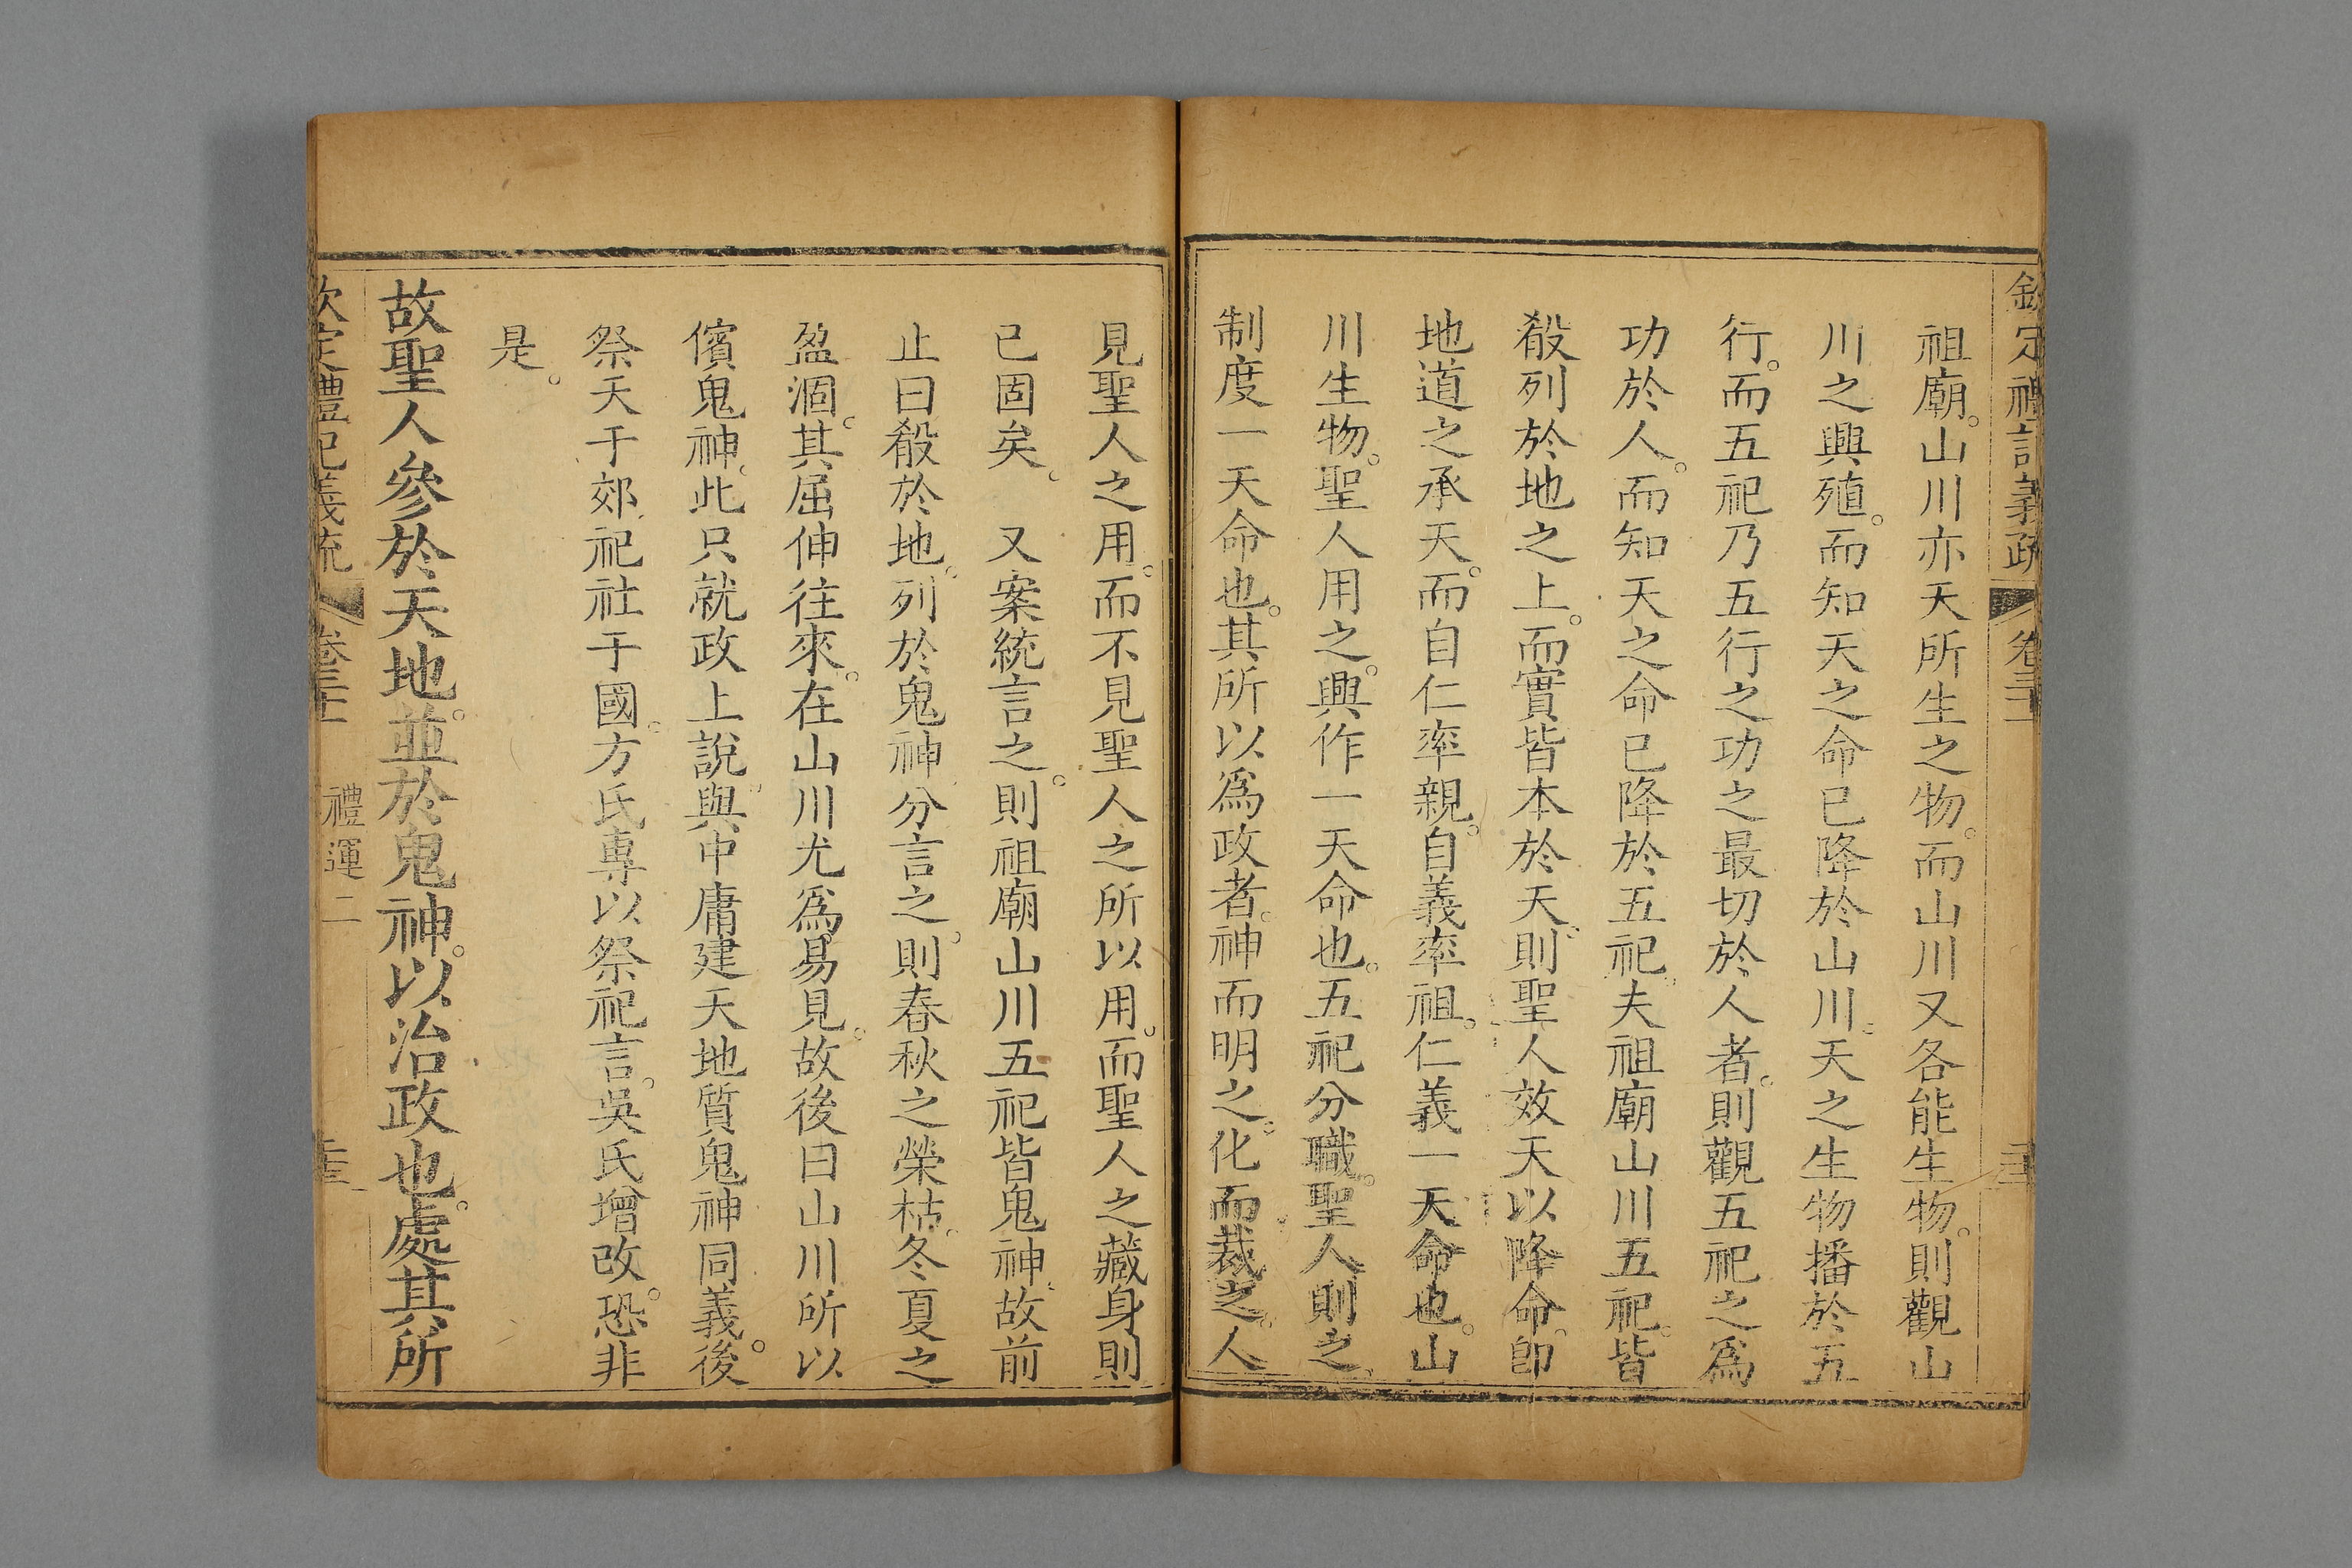 欽定禮記義疏 卷三十一
祖廟。山川亦天所生之物。而山川又各能生物。則觀山
川之興殖。而知天之命已降於山川。天之生物播於五
行。而五祀乃五行之功之最切於人者。則觀五祀之爲
功於人。而知天之命已降於五祀。夫祖廟山川五祀。皆
殽列於地之上。而實皆本於天。則聖人效天以降命。卽
地道之承天。而自仁率親。自義率祖。仁義一天命也。山
川生物。聖人用之。興作一天命也。五祀分職。聖人則之。
制度一天命也。其所以爲政者。神而明之。化而裁之。人
見聖人之用。而不見聖人之所以用。而聖人之藏身則
已固矣。 又案統言之。則祖廟山川五祀皆鬼神。故前
止曰殽於地。列於鬼神。分言之。則春秋之榮枯。冬夏之
盈涸。其屈伸往來。在山川尤爲易見。故後曰山川所以
儐鬼神。此只就政上說。與中庸建天地質鬼神同義。後
祭天于郊。祀社于國。方氏專以祭祀言。吳氏增改。恐非
是。
故聖人參於天地。並於鬼神。以治政也。處其所
欽定禮記義疏 卷三十一 禮運二